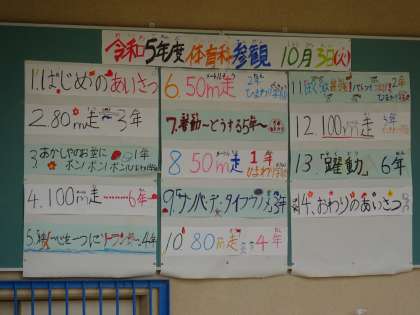 令和5年度 体育科参観 10月3日(火)
1.はじめのあいさつ
2.80m走〜3年
3.あかしやのお空に
ポン!ポン!ポン! 1年
4.100m走………6年
5. 心を一つに 4年
6.50m走 2年
ひまわり
7. 〜どうする5年〜
8 50m走 1年
ひまわり
9. サンバ・デ・タイフウ 3年
10 80m走 4年
11 2年
12.100m走
13.「躍動」 6年
14.おわりのあいさつ